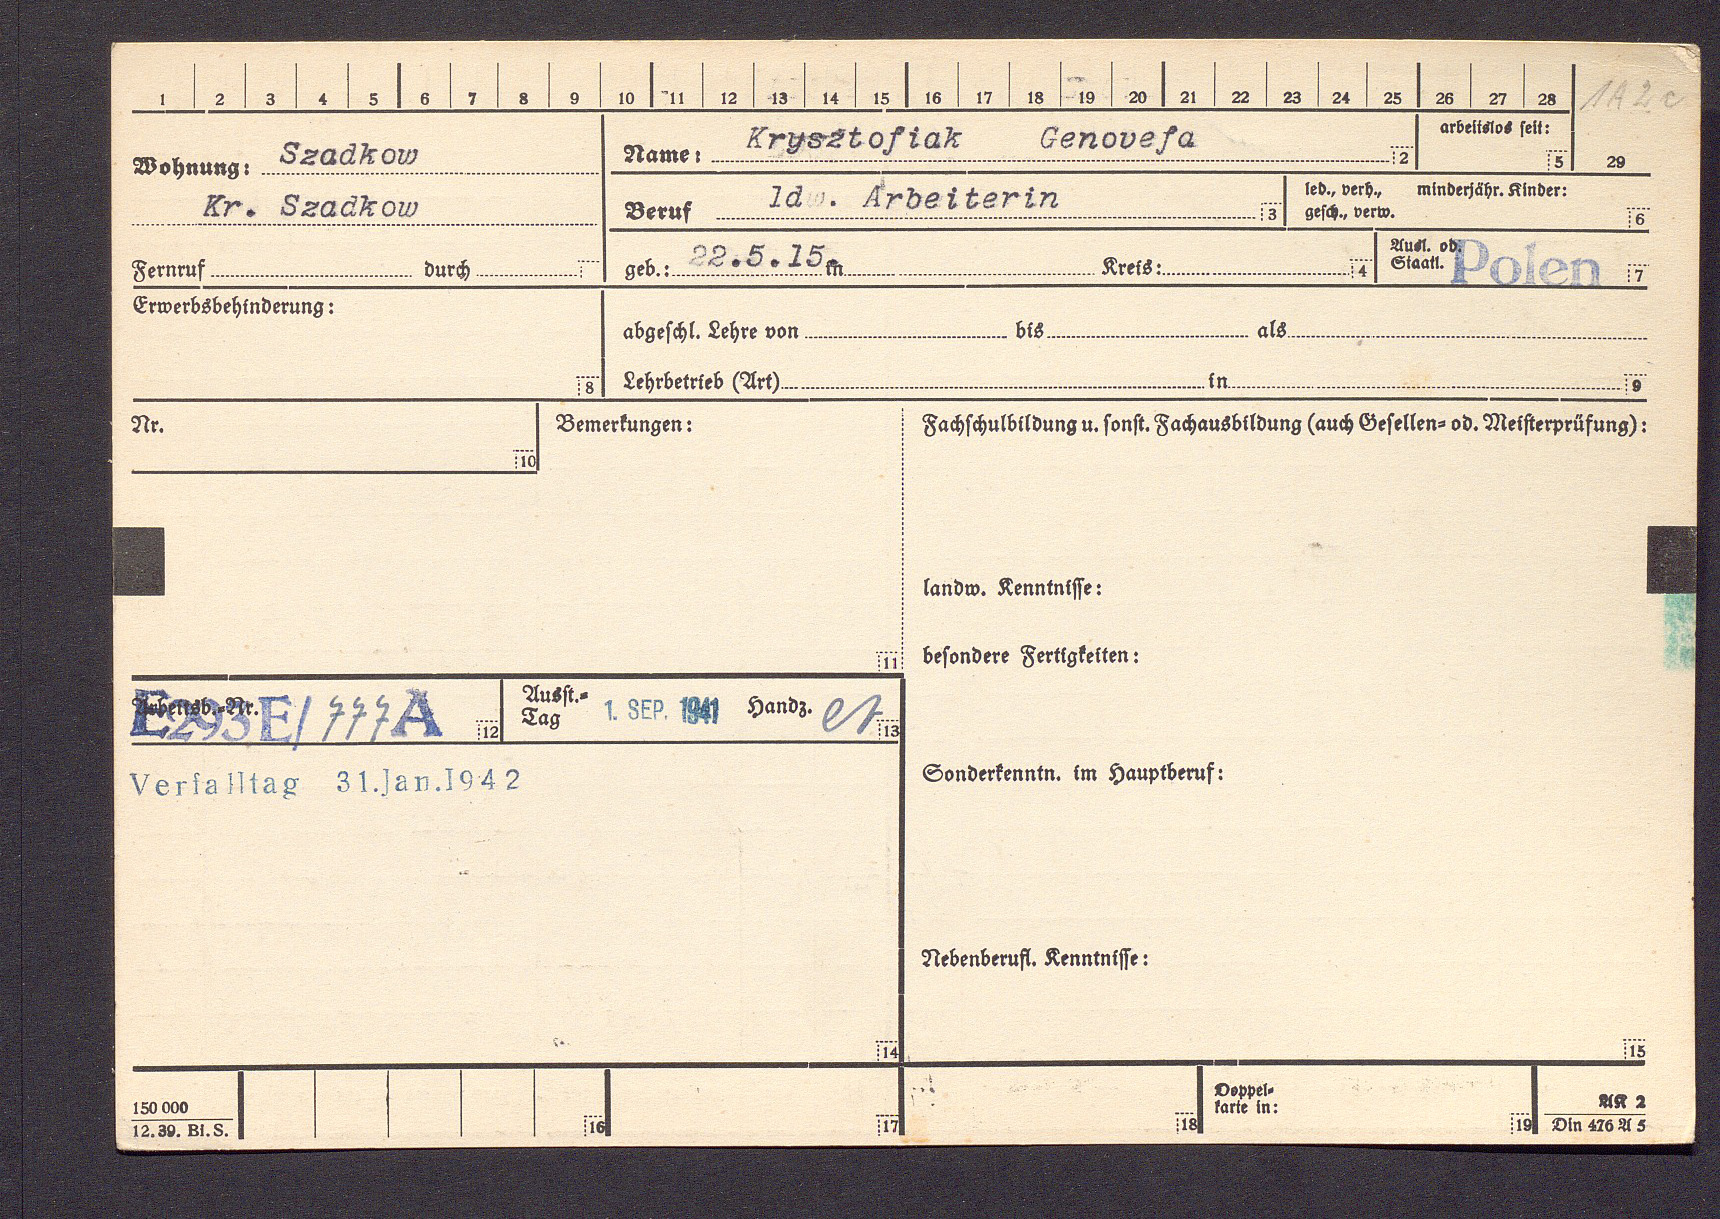 1 2 3 4 5 6 7 8 9 10 11 12 13 14 15 16 17 18 19 20 21 22 23 24 25 26 27 28 1A2c
Wohnung: Szadkow
Kr. Szadkow
Name: Krysztofiak Genovefa 2
arbeitslos seit: 5
29
Beruf ldw. Arbeiterin 3
led., verh., minderjähr. Kinder:
gesch., verw. 6
Fernruf durch
geb.: 22.5.15. in Kreis: 4
Ausl. od.
Staatl. Polen 7
Erwerbsbehinderung:
8
abgeschl. Lehre von bis als
Lehrbetrieb (Art) in 9
Nr.
10
Bemerkungen:
11
Fachschulbildung u. sonst. Fachausbildung (auch Gesellen= od. Meisterprüfung):
landw. Kenntnisse:
besondere Fertigkeiten:
Arbeitsb.-Nr.
E293E/777A 12
Ausst.=
Tag 1. SEP. 1941 Handz. 13
Verfalltag 31.Jan.1942
Sonderkenntn. im Hauptberuf:
Nebenberufl. Kenntnisse:
14
15
150 000
12.39. Bl.S.
16
17
18
Doppel=
karte in:
19
AK 2
Din 476 A 5